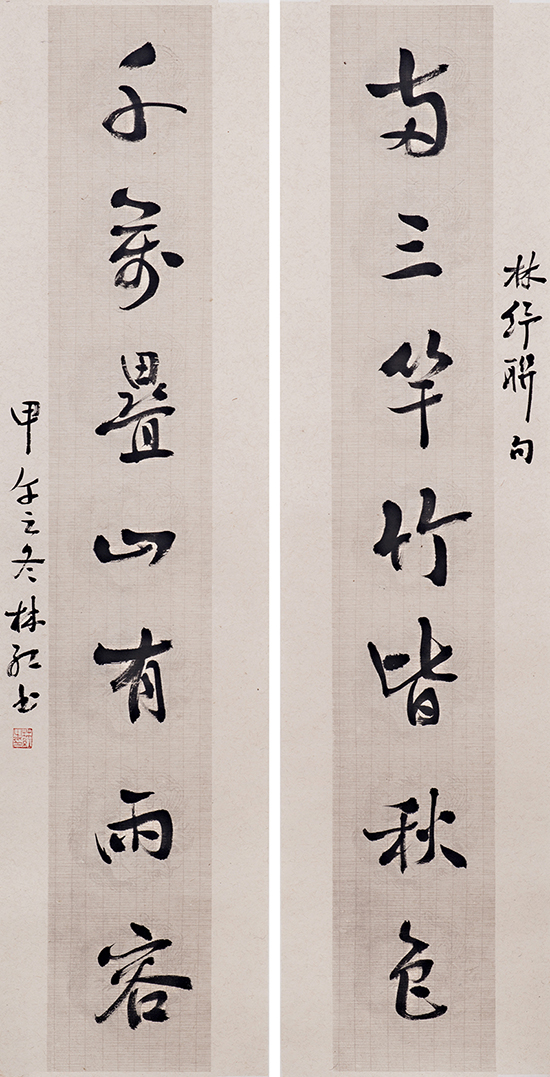 林紓聯句
兩三竿竹皆秋色
千萬疊山有雨容
甲午之冬林書